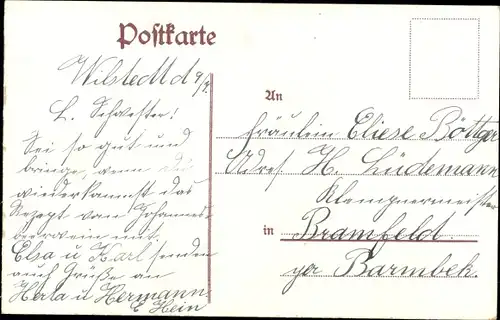 Postkarte
Wilstedt d 9/7.
L. Schwester!
Sei so gut und
bringe, wenn du
wiederkommst das
Rezept vom Johannes-
beerwein mit.
Elsa u Karl senden
auch Grüße an
Herta u Hermann
E Hein
An
Fräulein Eliese Böttger
Adres. H. Lüdemann
Klempnermeister
in Bramfeld
per Barmbek.